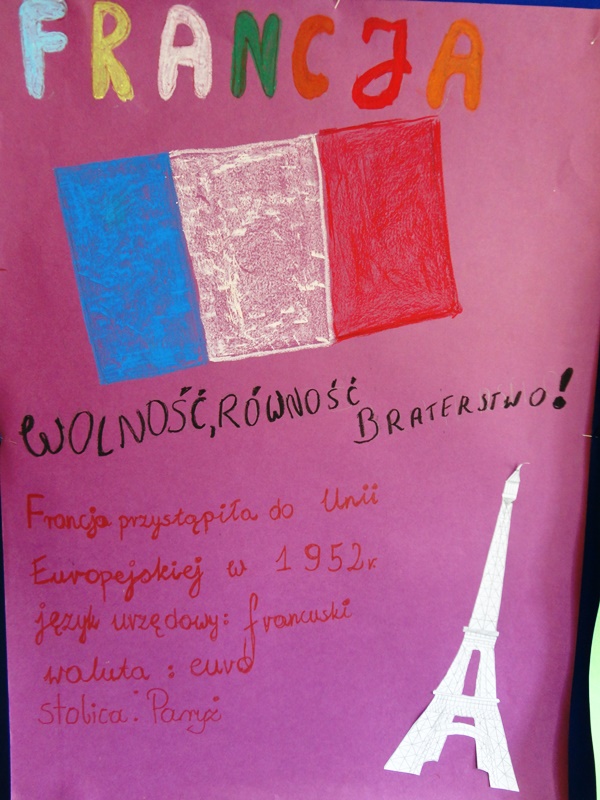 FRANCJA
WOLNOŚĆ, RÓWNOŚĆ
BRATERSTWO!
Francja przystąpiła do Unii
Europejskiej w 1952r.
język urzędowy: francuski
waluta: euro
stolica: Paryż